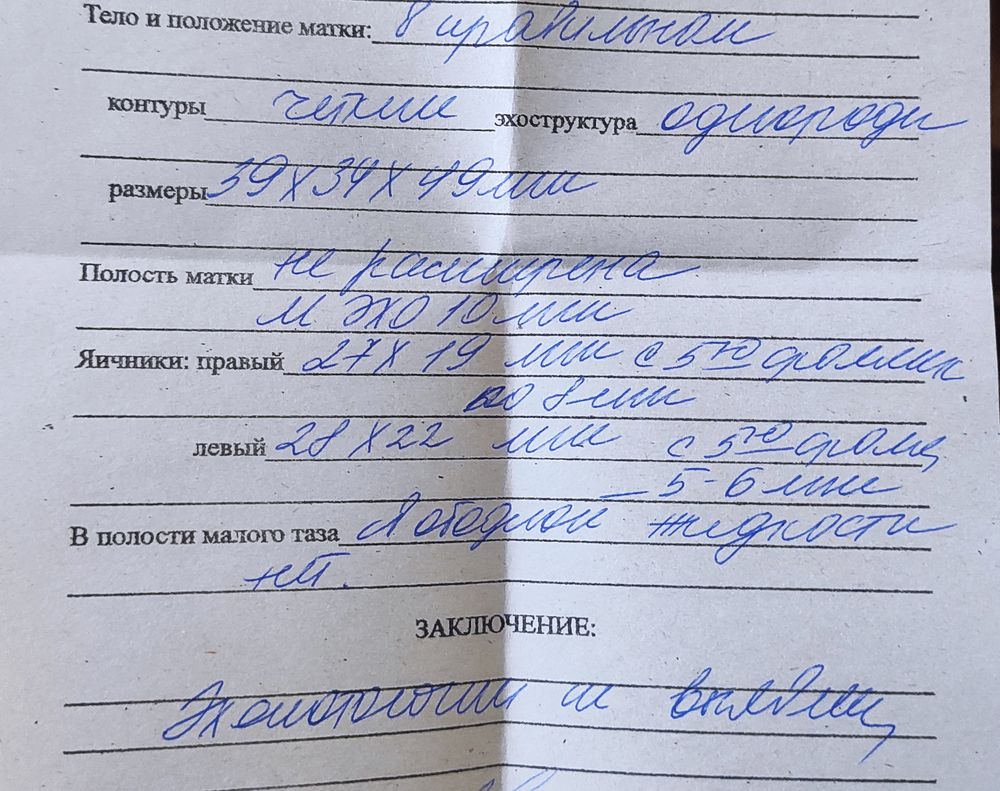 Тело и положение матки: в правильном
контуры четкие эхоструктура однородн
размеры 39 х 34 х 49 мм
Полость матки не расширена
М ЭХО 10 мм
Яичники: правый 27 х 19 мм с 5ю фоллик
до 8 мм
левый 28 х 22 мм с 5ю фолл
– 5-6 мм
В полости малого таза свободной жидкости
нет.
ЗАКЛЮЧЕНИЕ:
Эхопатологии не выявлен